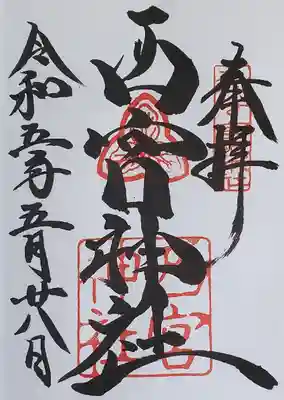 奉拝
西宮神社
令和五年五月廿八日
西宮神社